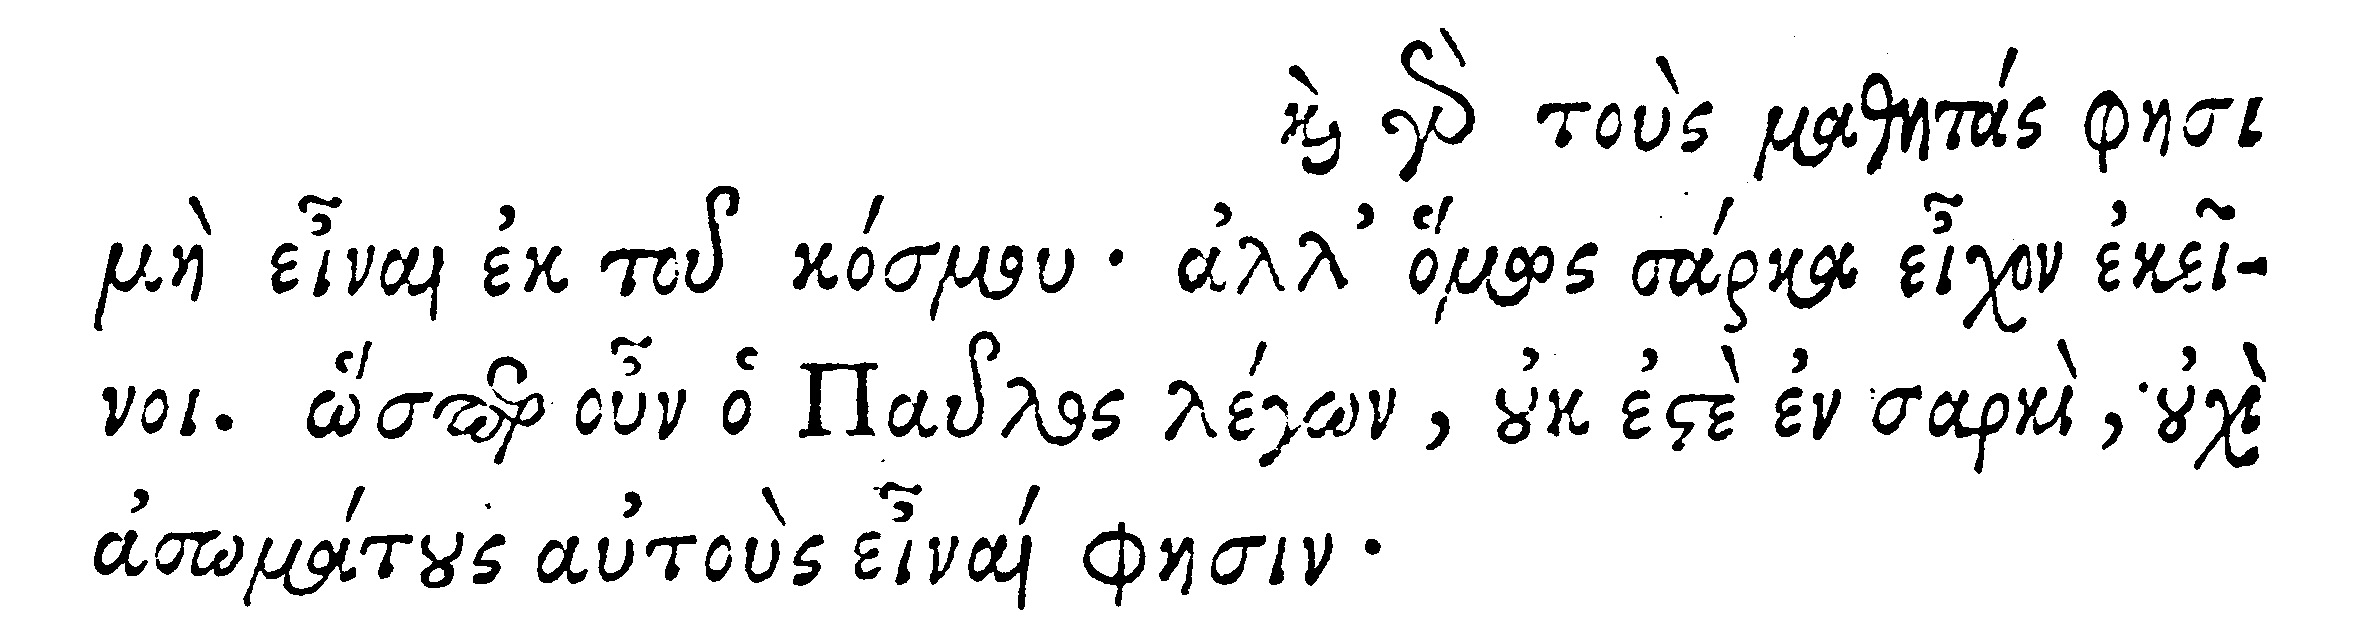 καὶ γὰρ τοὺς μαθητάς φησι
μὴ εἶναι ἐκ τοῦ κόσμου· ἀλλ᾽ ὅμως σάρκα εἶχον ἐκεῖ-
νοι. ὥσπερ οὖν ὁ Παῦλος λέγων, οὐκ ἐστὲ ἐν σαρκὶ, οὐχὶ
ἀσωμάτους αὐτοὺς εἶναί φησιν·